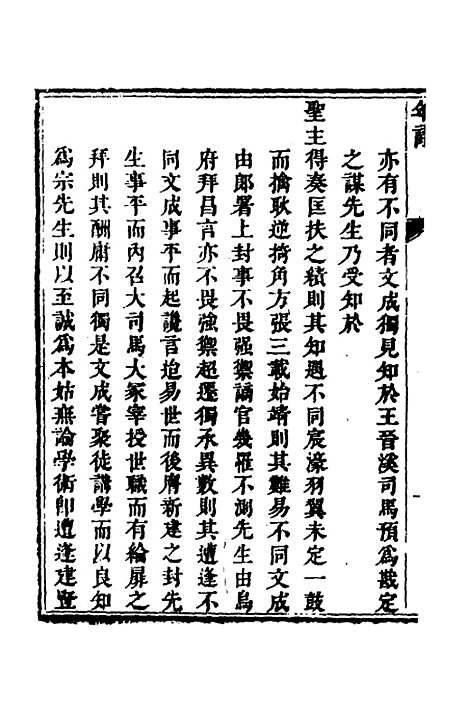 年譜
亦有不同者文成獨見知於王晉溪司馬預爲戡定
之謀先生乃受知於
聖主得奏匡扶之績則其知遇不同宸濠羽翼未定一鼓
而擒耿逆掎角方張三載始靖則其難易不同文成
由郎署上封事不畏强禦謫官幾罹不測先生由烏
府拜昌言亦不畏強禦超遷獨承異數則其遭逢不
同文成事平而起讒言迨易世而後膺新建之封先
生事平而內召大司馬大冢宰授世職而有綸扉之
拜則其酬庸不同獨是文成嘗聚徒講學而以良知
爲宗先生則以至誠爲本姑無論學術卽遭逢建豎